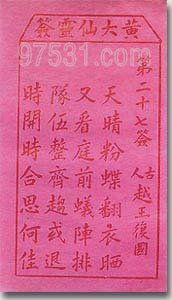 黃大仙靈簽
97531.com
第二十七簽
古人 越王復國
天晴粉蝶翻衣晒
又看庭前蟻陣排
隊伍整齊趨或退
時開時合思何佳